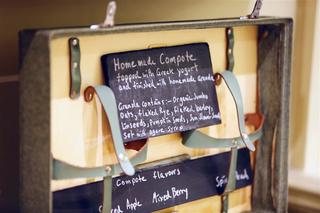 Homemade Compote
topped with Greek yogurt
and finished with homemade Granola
Granola contains:- Organic Jumbo
Oats, flaked Rye, flaked barley,
Linseeds, Pumpkin Seeds, Sun flower Seeds
set with agave syrup
Compote flavours
Apple Mixed Berry